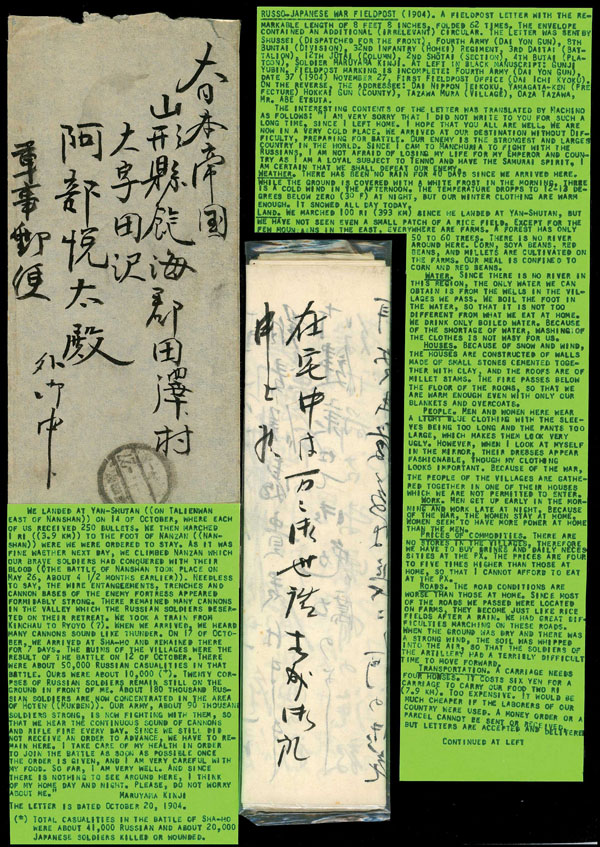 RUSSO-JAPANESE WAR FIELDPOST (1904). A FIELDPOST LETTER WITH THE RE-
MARKABLE LENGTH OF 8 FEET 8 INCHES, FOLDED 62 TIMES. THE ENVELOPE
CONTAINED AN ADDITIONAL (IRRELEVANT) CIRCULAR. THE LETTER WAS SENT BY
SHUSSEI (DISPATCHED FOR THE FRONT), FOURTH ARMY (DAI YON GUN), 8TH
BUNTAI (DIVISION), 32ND INFANTRY (HOHEI) REGIMENT, 3RD DAITAI (BAT-
TALION), 12TH JOTAI (COLUMN), 2ND SHOTAI (SECTION), 4TH BUTAI (PLA-
TOON), SOLDIER MARUYAMA KINJI. AT LEFT IN BLACK MANUSCRIPT: GUNJI
YUBIN. FIELDPOST MARKING IS INCOMPLETE: FOURTH ARMY (DAI YON GUN),
DATE 37 (1904) NOVEMBER 27, FIRST FIELDPOST OFFICE (DAI ICHI KYOKU).
ON THE REVERSE, THE ADDRESSEE: DAI NIPPON TEIKOKU, YAMAGATA-KEN (PRE-
FECTURE) HOKKAI GUN (COUNTY), TAZAWA MURA (VILLAGE), OAZA TAZAWA,
MR. ABE ETSUTA.
THE INTERESTING CONTENTS OF THE LETTER WAS TRANSLATED BY MACHINO
AS FOLLOWS: "I AM VERY SORRY THAT I DID NOT WRITE TO YOU FOR SUCH A
LONG TIME, SINCE I LEFT HOME. I HOPE THAT YOU ALL ARE WELL. WE ARE
NOW IN A VERY COLD PLACE. WE ARRIVED AT OUR DESTINATION WITHOUT DIF-
FICULTY, PREPARING FOR BATTLE. OUR ENEMY IS THE STRONGEST AND LARGES
COUNTRY IN THE WORLD. SINCE I CAM TO MANCHURIA TO FIGHT WITH THE
RUSSIANS, I AM NOT AFRAID OF LOSING MY LIFE FOR MY EMPEROR AND COUN-
TRY AS I AM A LOYAL SUBJECT TO TENNO AND HAVE THE SAMURAI SPIRIT, I
AM CERTAIN THAT WE SHALL DEFEAT OUR ENEMY.
WEATHER. THERE HAS BEEN NO RAIN FOR 40 DAYS SINCE WE ARRIVED HERE.
WHILE THE GROUND IS COVERED WITH A WHITE FROST IN THE MORNING, THERE
IS A COLD WIND IN THE AFTERNOON. THE TEMPERATURE DROPS TO 29-30 DE-
GREES BELOW ZERO (30 F) AT NIGHT, BUT OUR WINTER CLOTHING ARE WARM
ENOUGH. IT SNOWED ALL DAY TODAY.
LAND. WE MARCHED 100 RI (393 KM) SINCE WE LANDED AT YAN-SHUTAN, BUT
WE HAVE NOT SEEN EVEN A SMALL PATCH OF A RICE FIELD. EXCEPT FOR THE
FEW MOUNTAINS IN THE EAST, EVERYWHERE ARE FARMS. A FOREST HAS ONLY
50 TO 60 TREES. THERE IS NO RIVER
AROUND HERE. CORN, SOYA BEANS, RED
BEANS, AND MILLETS ARE CULTIVATED ON
THE FARMS. OUR MEAL IS CONFINED TO
CORN AND RED BEANS.
WATER. SINCE THERE IS NO RIVER IN
THIS REGION, THE ONLY WATER WE CAN
OBTAIN IS FROM THE WELLS IN THE VILL-
AGES WE PASS. WE BOIL THE FOOT IN
THE WATER, SO THAT IT IS NOT TOO
DIFFERENT FROM WHAT WE EAT AT HOME.
WE DRINK ONLY BOILED WATER. BECAUSE
OF THE SHORTAGE OF WATER, WASHING OF
THE CLOTHES IS NOT WASY FOR US.
HOUSES. BECAUSE OF SNOW AND WIND,
THE HOUSES ARE CONSTRUCTED OF WALLS
MADE OF SMALL STONES CEMENTED TOGE-
THER WITH CLAY, AND THE ROOFS ARE OF
MILLET STAMS. THE FIRE PASSES BELOW
THE FLOOR OF THE ROOMS, SO THAT WE
ARE WARM ENOUGH EVEN WITH ONLY OUR
BLANKETS AND OVERCOATS.
PEOPLE. MEN AND WOMEN HERE WEAR
A LIGHT BLUE CLOTHING WITH THE SLEE-
VES BEING TOO LONG AND THE PANTS TOO
LARGE, WHICH MAKES THEM LOOK VERY
UGLY. HOWEVER, WHEN I LOOK AT MYSELF
IN THE MIRROR, THEIR DRESSES APPEAR
FASHIONABLE, THOUGH MY CLOTHING
LOOKS IMPORTANT. BECAUSE OF THE WAR,
THE PEOPLE OF THE VILLAGES ARE GATHE-
RED TOGETHER IN ONE OF THEIR HOUSES
WHICH WE ARE NOT PERMITTED TO ENTER.
WORK. MEN GET UP EARLY IN THE MOR-
NING AND WORK LATE AT NIGHT. BECAUSE
OF THE WAR, THE WOMEN STAY AT HOME.
WOMEN SEEM TO HAVE MORE POWER AT HOME
THAN THE MEN.
PRICES OF COMMODITIES. THERE ARE
NO STORES IN THE VILLAGES, THEREFORE
WE HAVE TO BUY DRINKS AND DAILY NECES
SITIES AT THE PX. THE PRICES ARE FOUR
TO FIVE TIMES HIGHER THAN THOSE AT
HOME, SO THAT I CANNOT AFFORD TO EAT
AT THE PX.
ROADS. THE ROAD CONDITIONS ARE
WORSE THAN THOSE AT HOME. SINCE MOST
OF THE ROADS WE PASSED WERE LOCATED
ON FARMS, THEY BECOME JUST LIKE RICE
FIELDS AFTER A RAIN. WE HAD GREAT DIF-
FICULTIES MARCHING ON THESE ROADS.
WHEN THE GROUND WAS DRY AND THERE WAS
A STRONG WIND, THE SOIL WAS WHIPPED
INTO THE AIR, SO THAT THE SOLDIERS OF
THE ARTILLERY HAD A TERRIBLY DIFFICULT
TIME TO MOVE FORWARD.
TRANSPORTATION. A CARRIAGE NEEDS
FOUR HORSES. IT COSTS SIX YEN FOR A
CARRIAGE TO CARRY OUR FOOD TWO RI
(7.9 KM), TOO EXPENSIVE. IT WOULD BE
MUCH CHEAPER IF THE LABORERS OF OUR
COUNTRY WERE USED. A MONEY ORDER OR A
PARCEL CANNOT BE SENT OR RECEIVED,
BUT LETTERS ARE ACCEPTED AND DELIVERED
CONTINUED AT LEFT
大日本帝国
山形縣飽海郡田澤村
大字田沢
阿部悦太殿
軍事郵便
在宅中は万々
申上
WE LANDED AT YAN-SHUTAN ((ON TALIENWAN
EAST OF NANSHAN)) ON 14 OF OCTOBER, WHERE EACH
OF US RECEIVED 250 BULLETS. WE THEN MARCHED
1 RI ((3.9 KM) TO THE FOOT OF NANZAN ((NAN-
SHAN)) WERE WE WERE ORDERED TO STAY. AS IT WAS
FINE WAETHER NEXT DAY, WE CLIMBED NANZAN WHICH
OUR BRAVE SOLDIERS HAD CONQUERED WITH THEIR
BLOOD ((THE BATTLE OF NANSHAN TOOK PLACE ON
MAY 26, ABOUT 4 1/2 MONTHS EARLIER)). NEEDLESS
TO SAY, THE WIRE ENTANGEMENTS, TRENCHES AND
CANNON BASES OF THE ENEMY FORTRESS APPEARED
FORMIDABLY STRONG. THERE REMAINED MANY CANNONS
IN THE VALLEY WHICH THE RUSSIAN SOLDIERS DESER-
TED ON THEIR RETREAT. WE TOOK A TRAIN FROM
KINCHAU TO RYOYO (?). WHEN WE ARRIVED, WE HEARD
MANY CANNONS SOUND LIKE THUNDER. ON 17 OF OCTO-
BER, WE ARRIVED AT SHA-HO AND REMAINED THERE
FOR 7 DAYS. THE RUINS OF THE VILLAGES WERE THE
RESULT OF THE BATTLE ON 12 OF OCTOBER. THERE
WERE ABOUT 50,000 RUSSIAN CASUALTIES IN THAT
BATTLE. OURS WERE ABOUT 10,000 (*). TWENTY COR-
PSES OF RUSSIAN SOLDIERS REMAIN STILL ON THE
GROUND IN FRONT OF ME. ABOUT 180 THOUSAND RUS-
SIAN SOLDIERS ARE NOW CONCENTRATED IN THE AREA
OF HOTEN ((MUKDEN)). OUR ARMY, ABOUT 90 THOUSAND
SOLDIERS STRONG, IS NOW FIGHTING WITH THEM, SO
THAT WE HEAR THE CONTINUOUS SOUND OF CANNONS
AND RIFLE FIRE EVERY DAY. SINCE WE STILL DID
NOT RECEIVE AN ORDER TO ADVANCE, WE HAVE TO RE-
MAIN HERE. I TAKE CARE OF MY HEALTH IN ORDER
TO JOIN THE BATTLE AS SOON AS POSSIBLE ONCE
THE ORDER IS GIVEN, AND I AM VERY CAREFUL WITH
MY FOOD. SO FAR, I AM VERY WELL. AND SINCE
THERE IS NOTHING TO SEE AROUND HERE, I THINK
OF MY HOME DAY AND NIGHT. PLEASE, DO NOT WORRY
ABOUT ME." MARUYAMA KINJI
THE LETTER IS DATED OCTOBER 20, 1904.
(*) TOTAL CASUALTIES IN THE BATTLE OF SHA-HO
WERE ABOUT 41,000 RUSSIAN AND ABOUT 20,000
JAPANESE SOLDIERS KILLED OR WOUNDED.